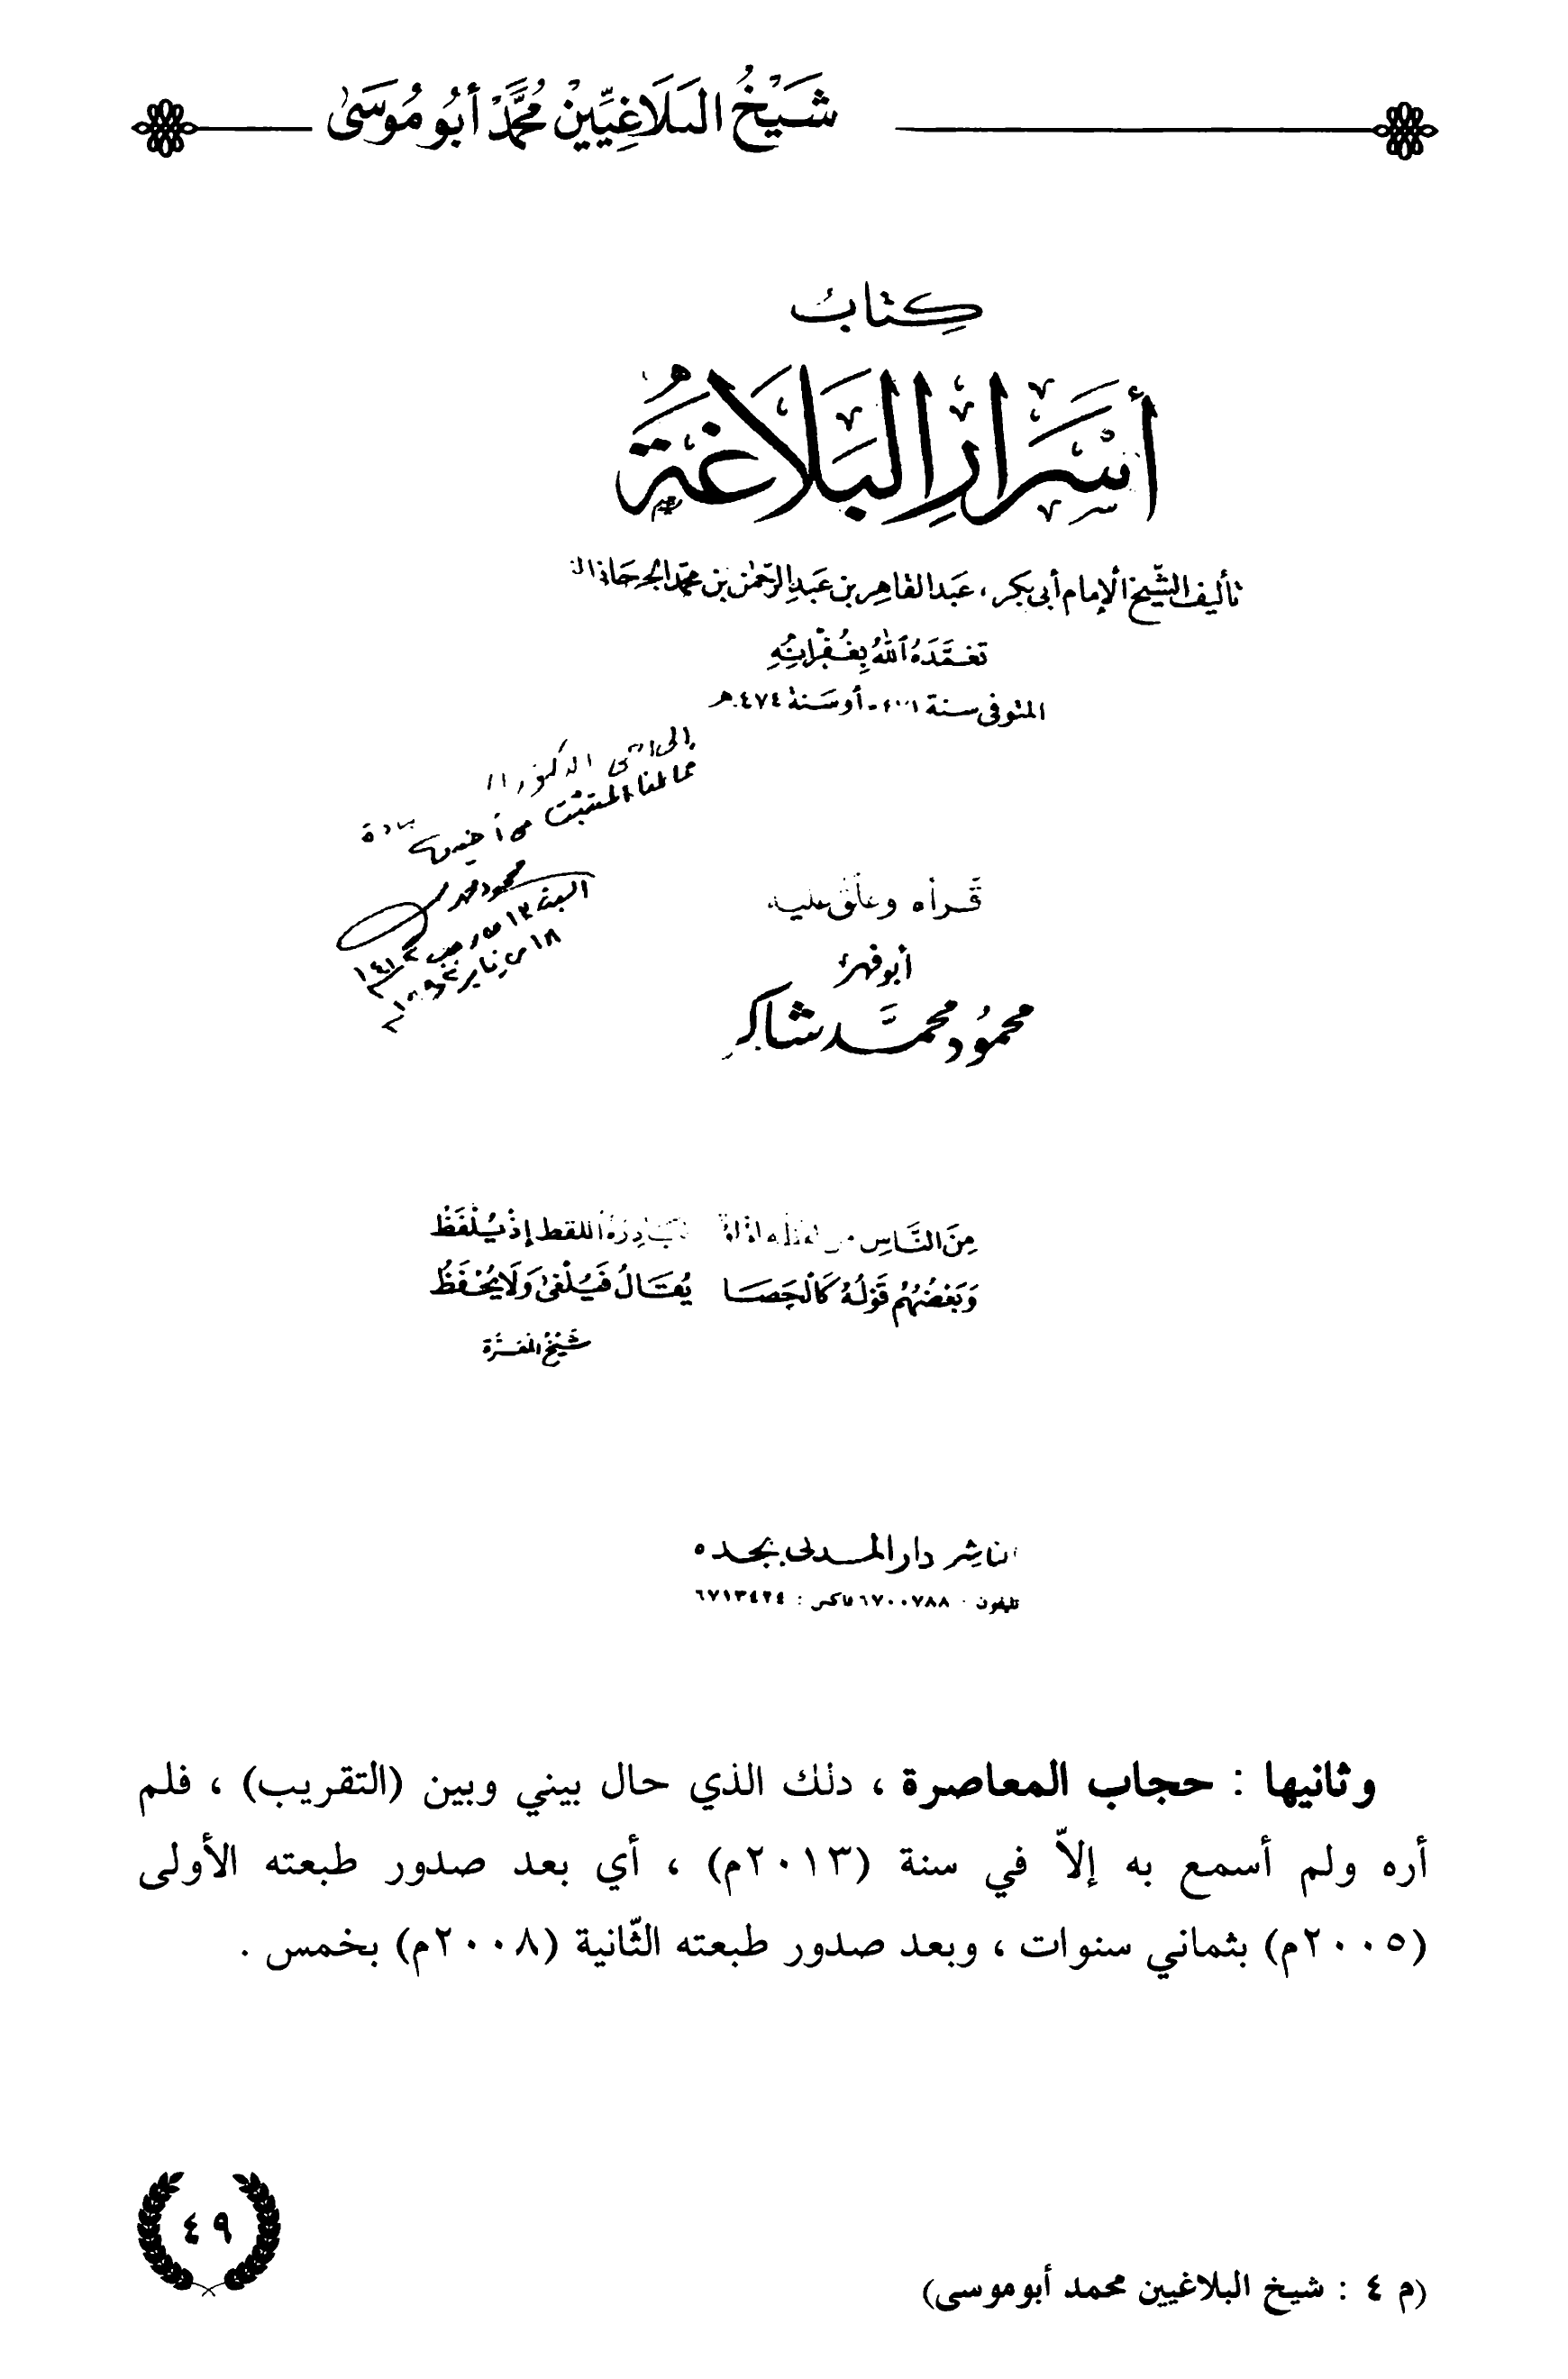 شَيْخُ البَلَاغِيِّينْ مُحَمَّدْ أَبُو مُوسَىٰ
كِتابُ
أَسْرَارِ البَلَاغَةِ
تأليف الشَّيخ الإمام أبى بكر ، عَبد القاهِر بن عَبدِ الرَّحمٰن بن محمّد الجرجانى
تَغَمَّدَهُ ٱللهُ بِغُفْرَانِهِ
المتوفى سنة - أو سَنة ٤٧٤ هـ
الدكتور
محمود محمد
السبت ١٣ من رجب
١٨ من يناير
قَرأه وعلّق عليه
أبو فهر
محمُود محمَّد شاكر
مِنَ النَّاسِ اللقط إِذْ يُلْفَظُ
وَبَعْضُهُم قَوْلُهُ كَالْحَصَا يُقَالُ فَيُلْغَىٰ وَلَا يُحْفَظُ
شَيْخُ المَعَرَّة
الناشر دار المدنى بجده
تليفون ٦٧٠٠٧٨٨ فاكس : ٦٧١٣٤٢٤
وثانيها : حجاب المعاصرة ، ذلك الذي حال بيني وبين (التقريب) ، فلم
أره ولم أسمع به إلاّ في سنة (٢٠١٣م) ، أي بعد صدور طبعته الأولى
(٢٠٠٥م) بثماني سنوات ، وبعد صدور طبعته الثّانية (٢٠٠٨م) بخمس .
٤٩
(م ٤ : شيخ البلاغيين محمد أبو موسى)